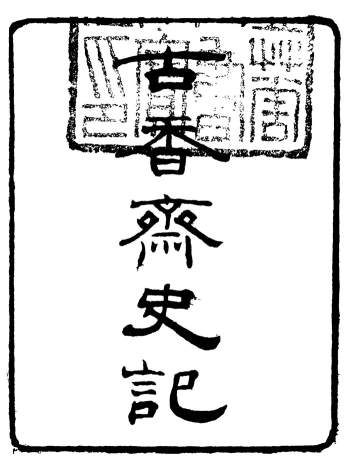 古香齋史記